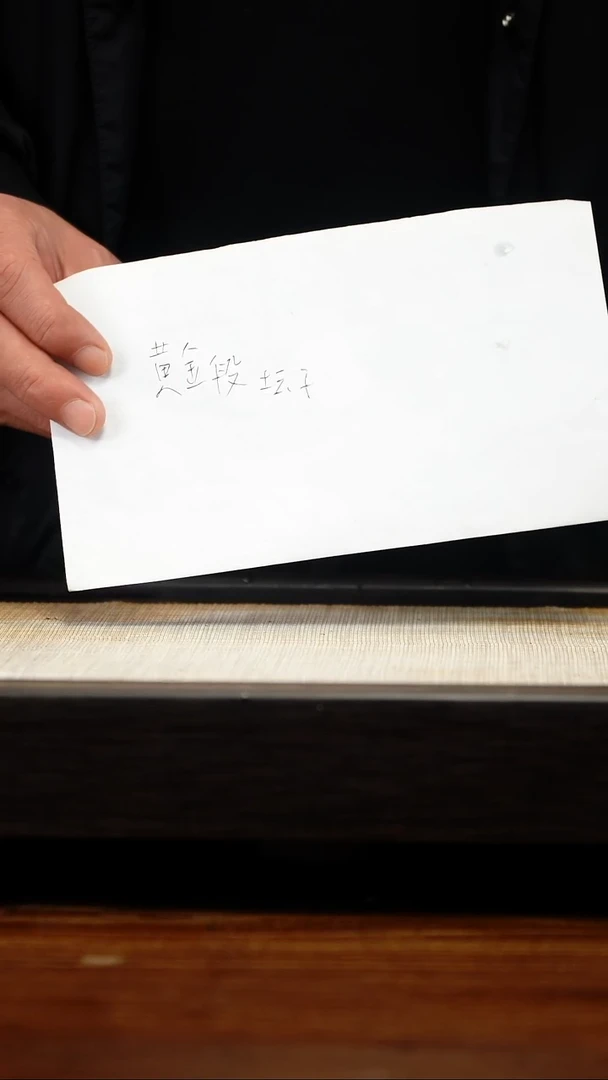 黄金段 坛子